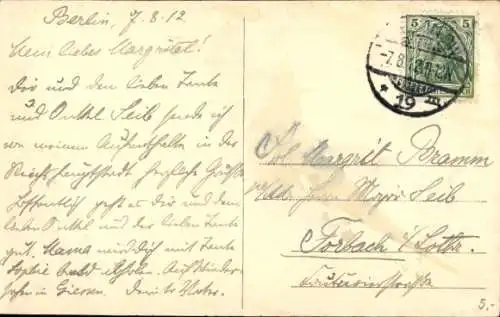 Berlin, 7.8.12
Mein liebes Margretel!
Dir und den lieben Tante
und Onkel Seib sende ich
von meinem Aufenthalte in der
Reichshauptstadt herzliche Grüße
Hoffentlich geht es Dir und dem
lieben Onkel und der lieben Tante
gut. Mama wird Dich mit Tante
Sophie bald abholen. Auf Wieder-
sehen in Giessen. Dein tr. Vater.
5 5
-7.8.
* 19
Margrit Bramm
Major Seib
Forbach i/Lothr.
5.-